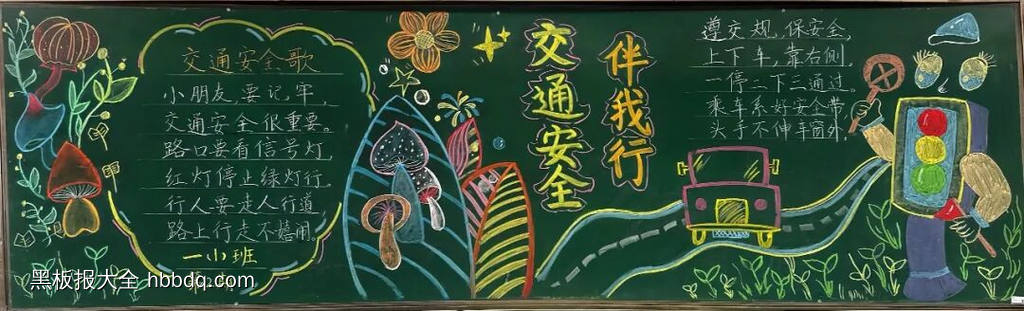 交通安全歌
小朋友,要记牢,
交通安全很重要。
路口要看信号灯,
红灯停止绿灯行。
行人要走人行道
路上行走不嘻闹。
一小班
黑板报大全 hbbdq.com
交通安全
伴我行
遵交规,保安全,
上下车,靠右侧,
一停二下三通过。
乘车系好安全带,
头手不伸车窗外。